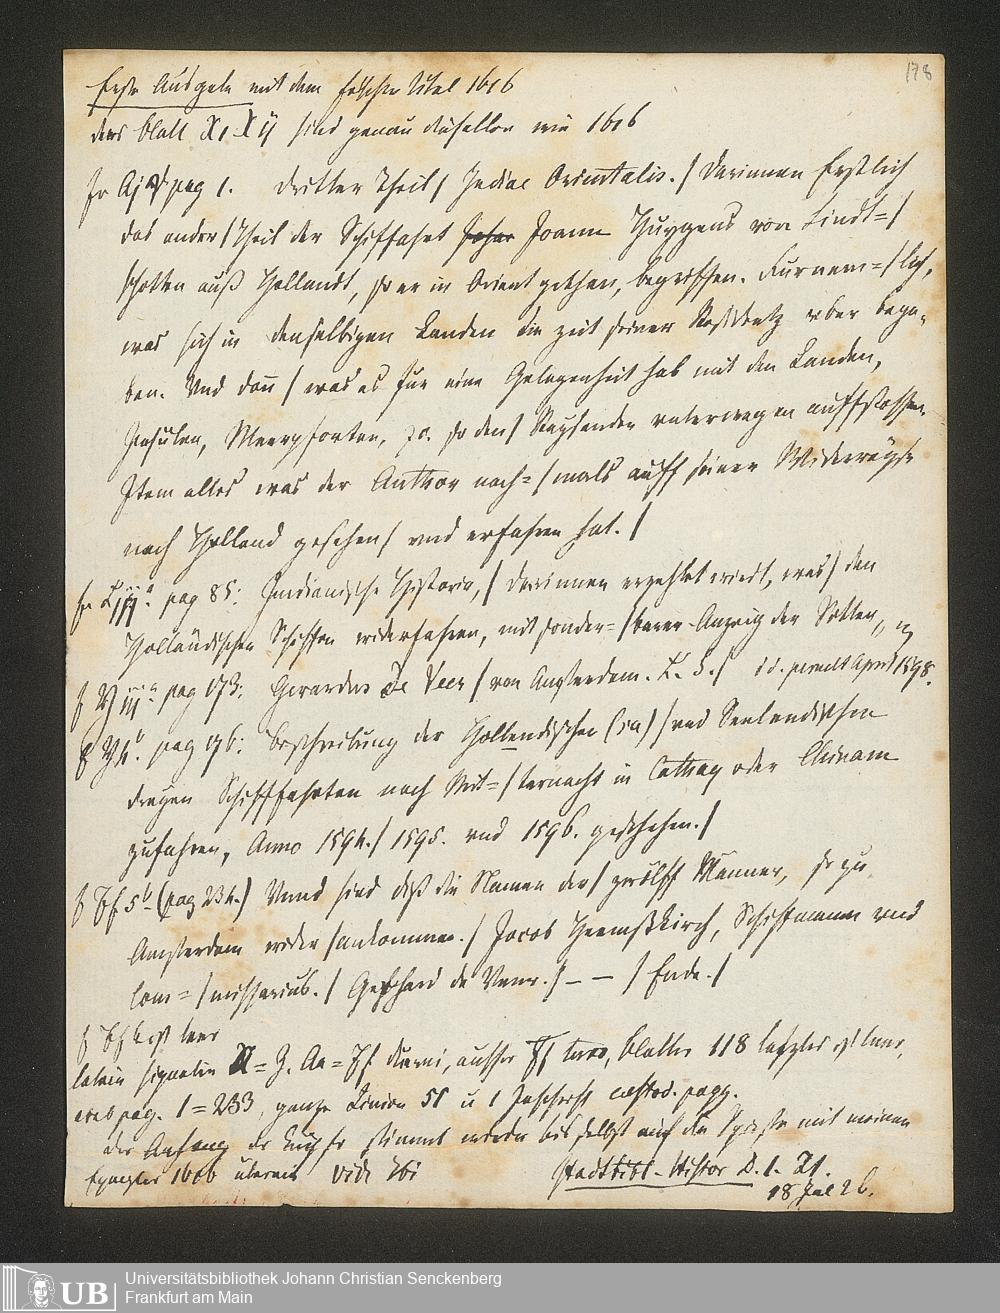 178
Erste Ausgabe mit dem falschen Titel 1616
das Blatt X1. Xij sind genau dieselben wie 1616
fo Aj pag 1. Dritter Theil / Indiae Orientalis. / Darinnen Erstlich
das ander / Theil der Schiffahrt Joann Huygens von Lindt= /
schotten auß Hollandt, so er in Orient gethan, begriffen. Furnem= / lich,
was sich in denselbigen Landen die zeit seiner Residentz vber bege-
ben. Vnd dan / was es fur eine Gelegenheit hab mit den Landen,
Insulen, Meerpforten, so den / Reysenden vnterwegen auffstossen.
Item alles was der Author nach= / mals auff seiner Widerreyse
nach Holland gesehen / vnd erfahren hat. /
pag 85: Indianische Historia, / darinnen erzehlet wirdt, was / den
Holländischen Schiffen widerfahren, mit sonder= / barer Anzeig der Sitten,
pag 173: Gerardus de Veer / von Amsterdam. L. S. / April 1598.
pag 176: Beschreibung der Hollendischen (sic) / vnd Seelendischen
dreyen Schifffahrten nach Mit= / ternacht in Cathay oder Chinam
zufahren, Anno 1594. / 1595. vnd 1596. geschehen. /
f Ff 5b (pag 234.) Vnnd sind diß die Namen der / zwölff Männer, so zu
Amsterdam wider / ankommen. / Jacob Heemßkirch, Schiffmann vnd
Com= / missarius. / Gerhard de Veer. / — — / Ende. /
f Ff 6 ist leer
latein Signatur = Z. Aa = Ff, ausser Ff, Blatter 118 letztes ist leer,
arab pag. 1 = 233, ganze 51 u 1 Inschrift
der Anfang der Kupfer stimmt selbst auf die mit meinem
Exemplar 1616 überein vide ibi
Stadtbibl - Histor D. 1. 21.
18 Jul 26.
UB
Universitätsbibliothek Johann Christian Senckenberg
Frankfurt am Main